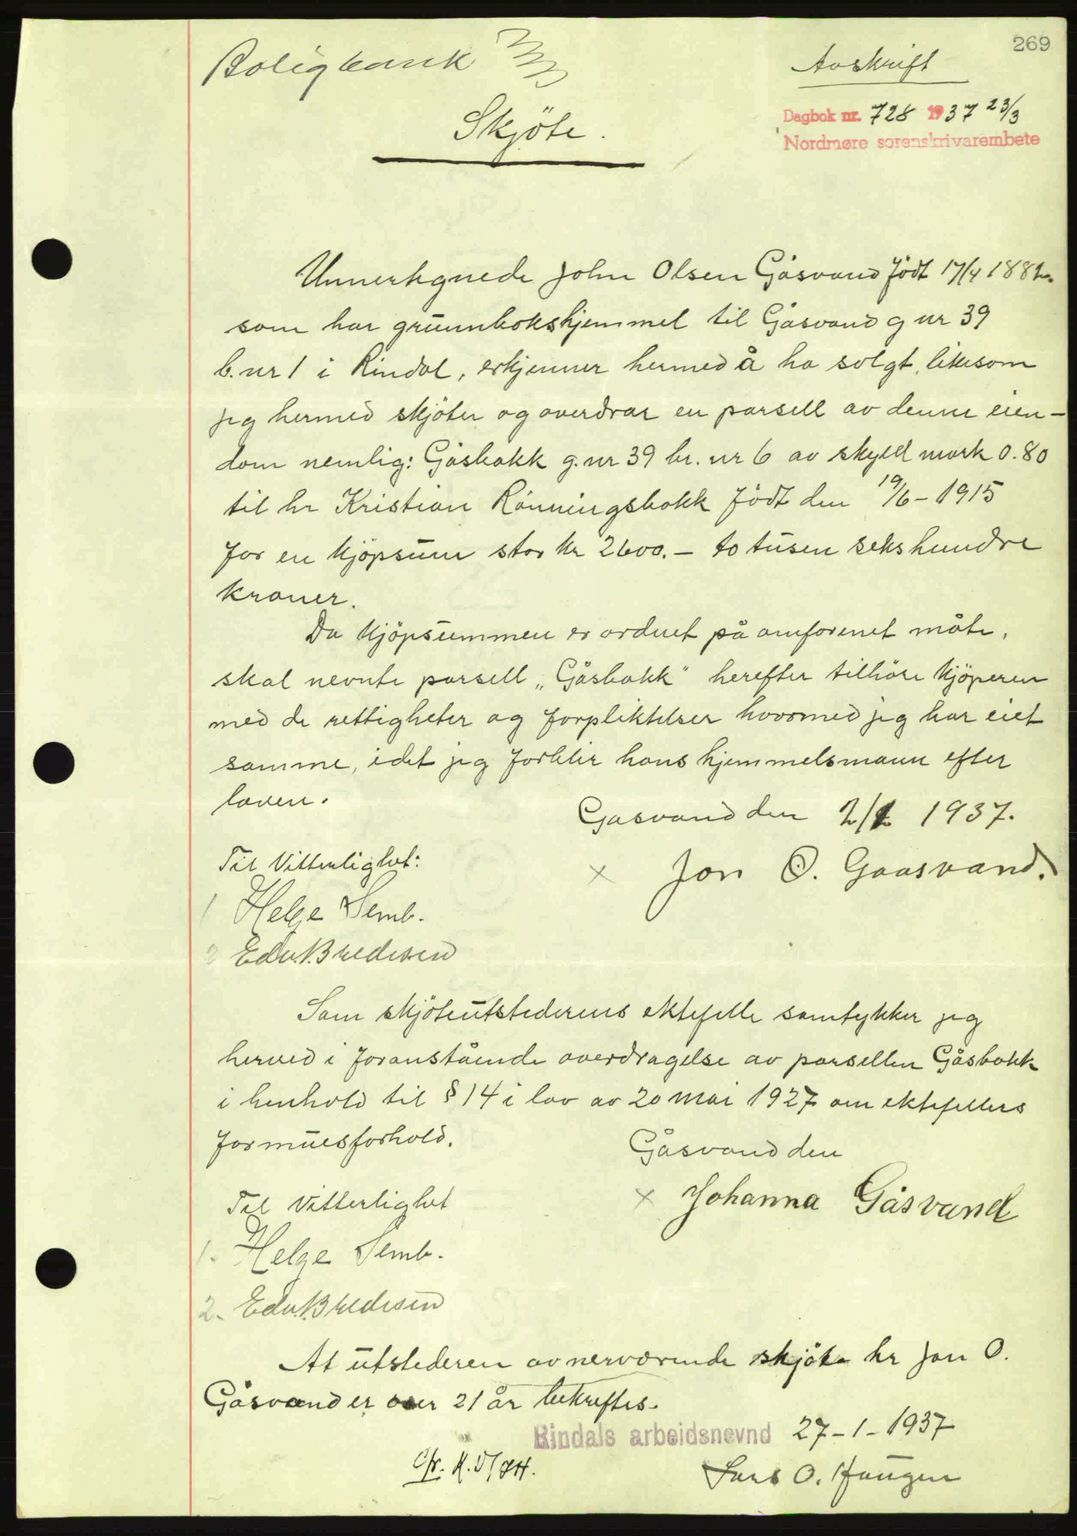 269
Boligbank
Avskrift
Dagbok nr. 728 1937 23/3
Nordmøre sorenskrivarembete
Skjöte.
Unnertegnede John Olsen Gåsvand födt 17/4 1882
som har grunnbokshjemmel til Gåsvand g nr 39
b.nr 1 i Rindal, erkjenner hermed å ha solgt, likesom
jeg hermed skjöter og overdrar en parsell av denne eien-
dom nemlig: Gåsbakk g.nr 39 br. nr 6 av skyld mark 0.80
til hr Kristian Rönningsbakk födt den 19/6 - 1915
for en kjöpsum stor kr 2600.- to tusen sekshundre
kroner.
Da kjöpsummen er ordnet på omforenet måte,
skal nevnte parsell „Gåsbakk" herefter tilhöre kjöperen
med de rettigheter og forpliktelser hvormed jeg har eiet
samme, idet jeg forblir hans hjemmelsmann efter
loven.
Gasvand den 2/1 1937.
Til Vitterlighet:
x Jon O. Gaasvand.
1 Helge Semb.
2 Edv. Bredesen
Som skjöteutstederens ektefelle samtykker jeg
herved i foranstående overdragelse av parsellen Gåsbakk
i henhold til § 14 i lov av 20 mai 1927 om ektefellers
formuesforhold.
Gåsvand den
Til Vitterlighet
x Johanna Gåsvand
1. Helge Semb.
2. Edv. Bredesen
At utstederen av nerværende skjöte hr Jon O.
Gåsvand er over 21 år bekreftes.
Rindals arbeidsnevnd 27-1-1937
Lars O. Haugen